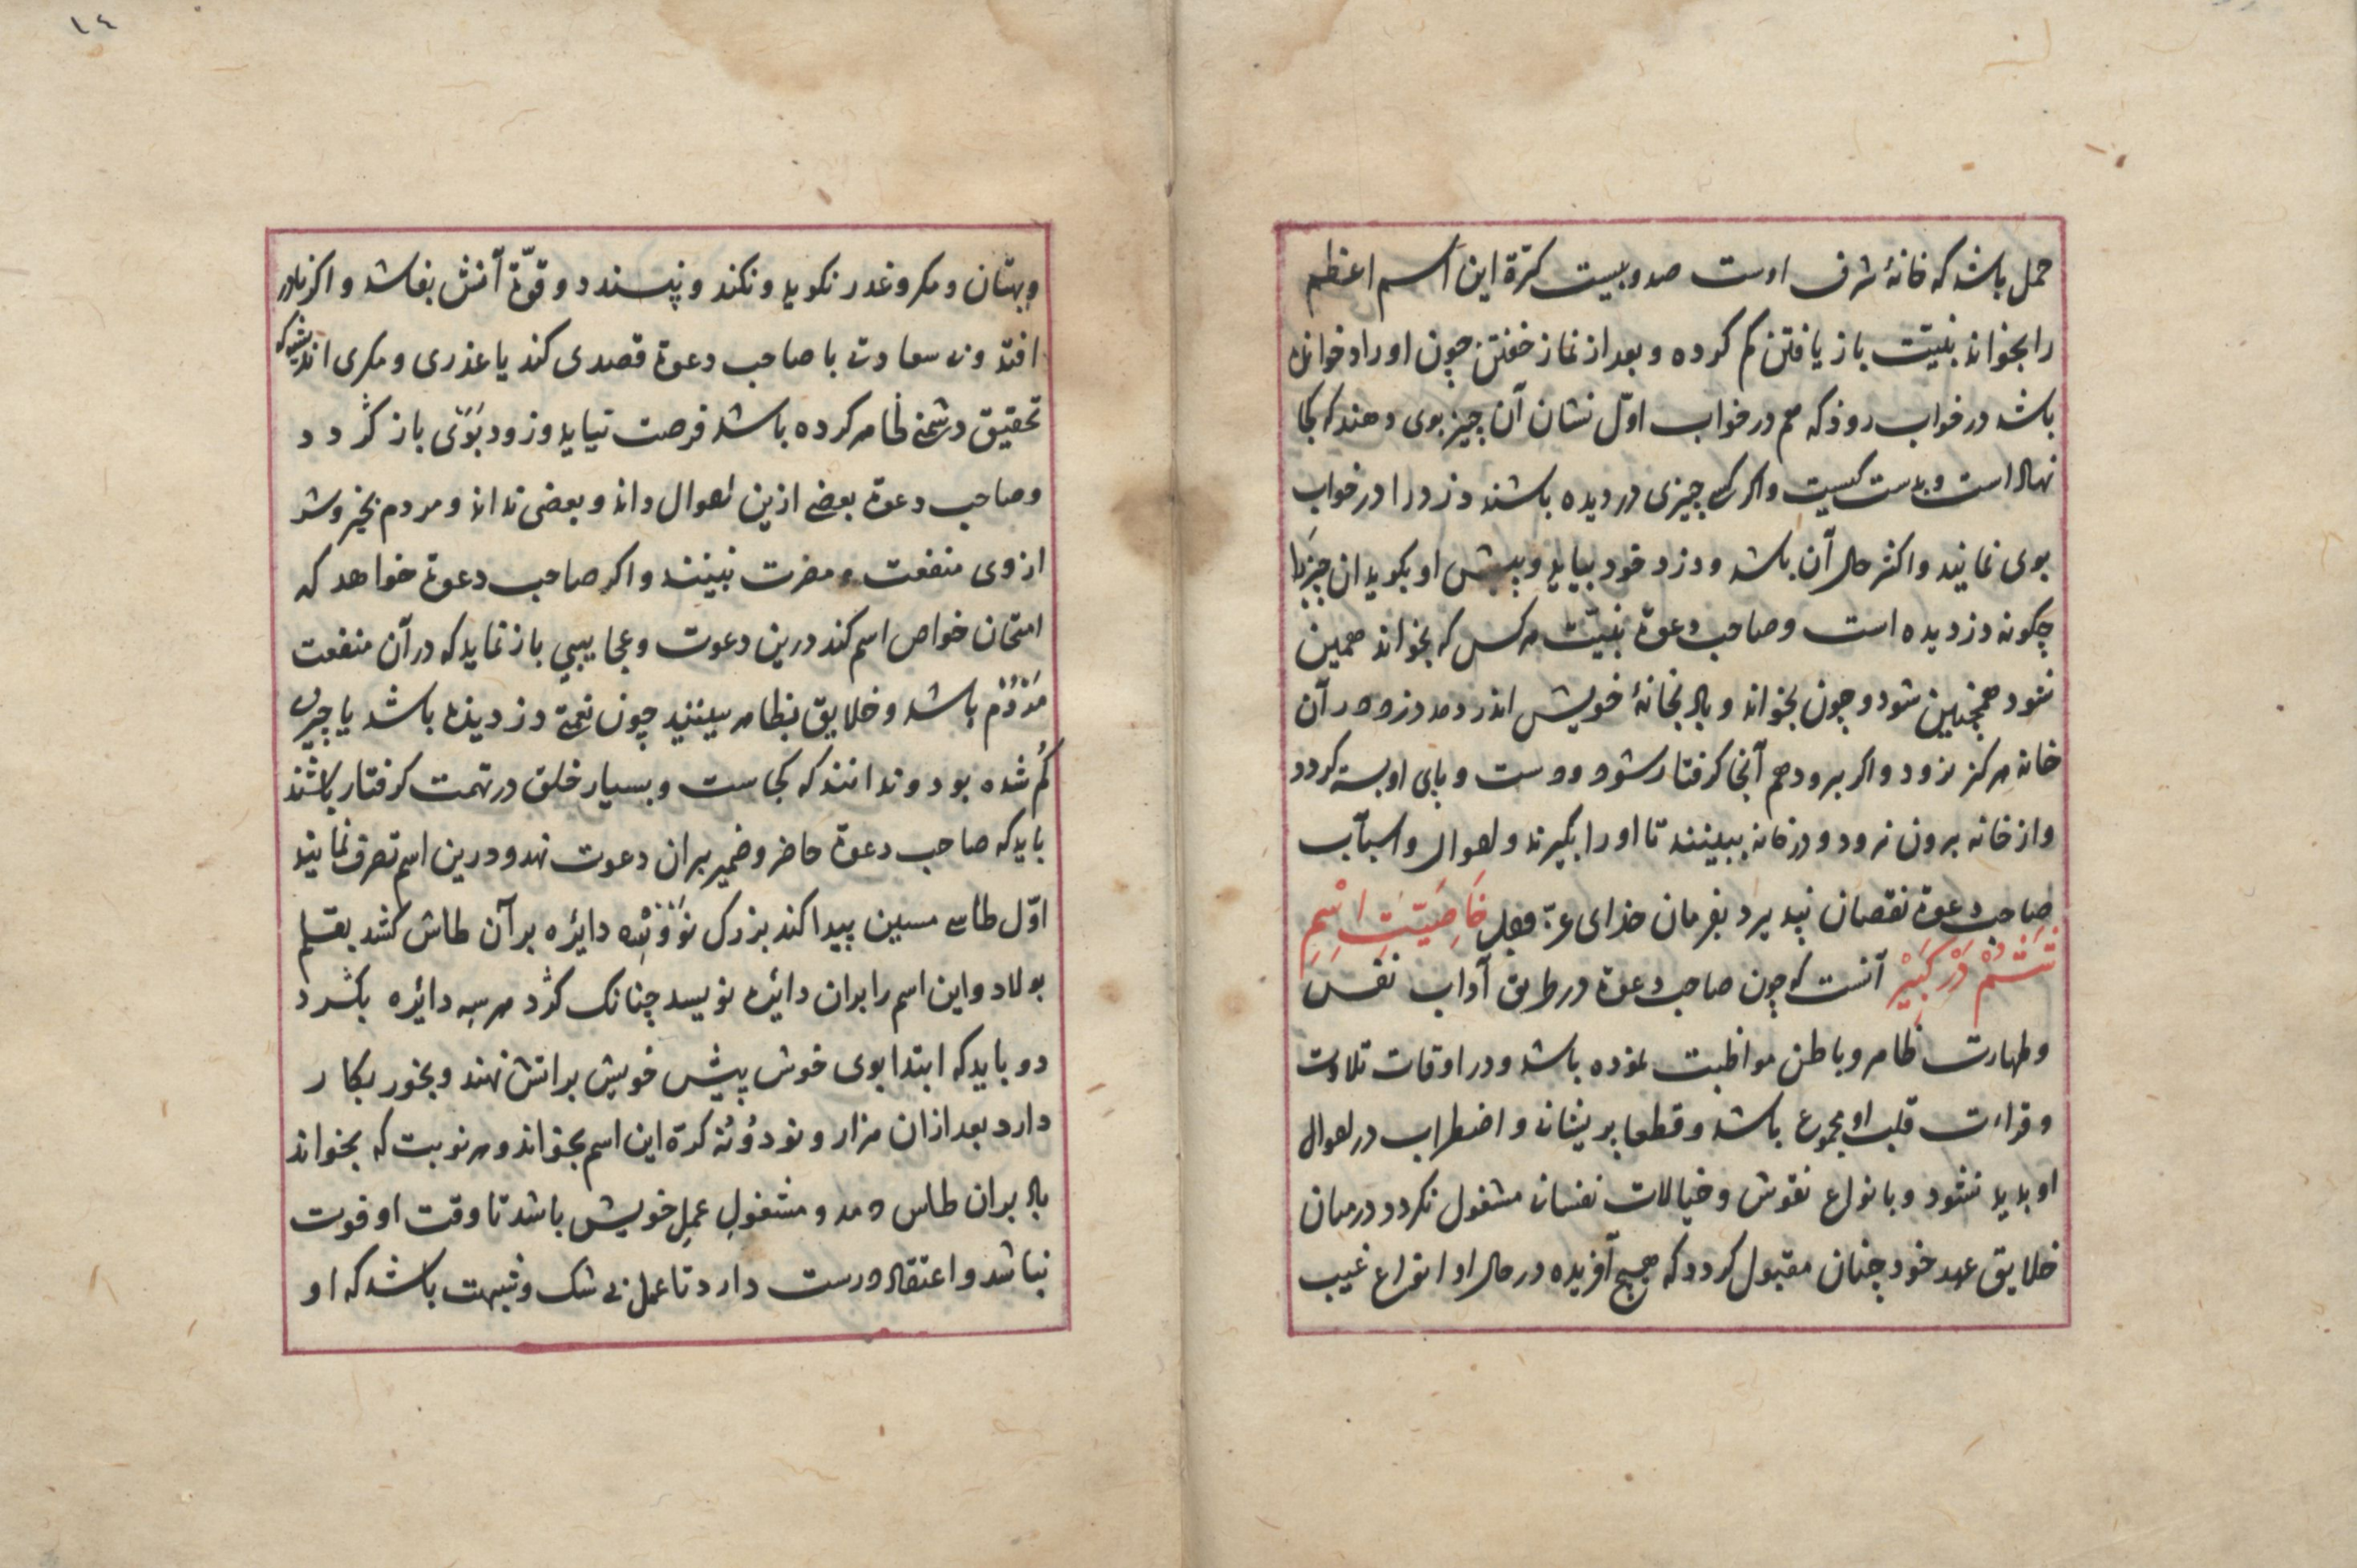 حمل باشد که خانهٔ شرف اوست صد و بیست کرّة این اسم اعظم
را بخواند بنیّت باز یافتن کم کرده و بعد از نماز خفتن چون اوراد خوانده
باشد در خواب روذ که هم در خواب اوّل نشان آن چیز بوی دهند که کجا
نهاد است و بدست کیست و اکر کسی چیزی دزدیده باشند دزد را در خواب
بوی نمایند و اکثر حال آن باشد و دزد خود بیاید و پیش او بکوید ان چیز را
چکونه دزدیده است و صاحب دعوة بنیّت هر کس که بخواند همین
شود همچنین شود و چون بخواند و باد بخانهٔ خویش اندر دمد دزد در آن
خانه هرکز نرود و اکر برود هم آنجا کرفتار شود و دست و پای او بسته کردد
و از خانه برون نرود و در خانه ببینند تا او را بگیرند و احوال و اسباب
صاحب دعوة نقصان نپذیرد بفرمان خدای عزّ وجل خَاصِیَّتِ اسْمِ
آنست که چون صاحب دعوة در طریق آداب نفس
و طهارت ظاهر و باطن مواظبت نموده باشد و در اوقات تلاوت
و قراءت قلب او مجموع باشد و قطعا پریشانی و اضطراب در احوال
او بدید نشود و بانواع نقوش و خیالات نفسانی مشغول نکردد در میان
خلایق عهد خود چنان مقبول کردد که هیچ آفریده در حال او انواع غیب
١٤
و بهتان و مکر و غدر نکوید و نکند و نپسندد و قوّة آتش بفاشد و اکر نادر
افتد و بی سعادتی با صاحب دعوة قصدی کند یا غدری و مکری اندیشد که
تحقیق دشمنی ظاهر کرده باشد فرصت نیابد و زود بوی باز کردد
و صاحب دعوة بعضی ازین احوال داند و بعضی نداند و مردم بخیر و شر
از وی منفعت و مضرت بینند و اکر صاحب دعوة خواهد که
امتحان خواص اسم کند درین دعوت و عجایبی باز نماید که در آن منفعت
مردم باشد و خلایق بظاهر ببینند چون نعمة دزدیده باشد یا چیزی
کم شده بود و ندانند که کجاست و بسیار خلق در تهمت کرفتار باشند
باید که صاحب دعوة حاضر و ضمیر بران دعوت نهد و درین اسم تصرف نمایند
اوّل طاسی مسین پیدا کند بزرک دایره بر آن طاس کشد بقلم
بولاد و این اسم را بران دایره نویسد چنانک کرد هر سه دایره بکردد
دو باید که ابتدا بوی خوش پیش خویش برآتش نهند و بخور بکار
دارد بعد ازان هزار و نود و نه کرّة این اسم بخواند و هر نوبت که بخواند
باد بران طاس دمد و مشغول عمل خویش باشد تا وقت او فوت
نباشد و اعتقاد درست دارد تا عمل بی شک و شبهت باشد که او